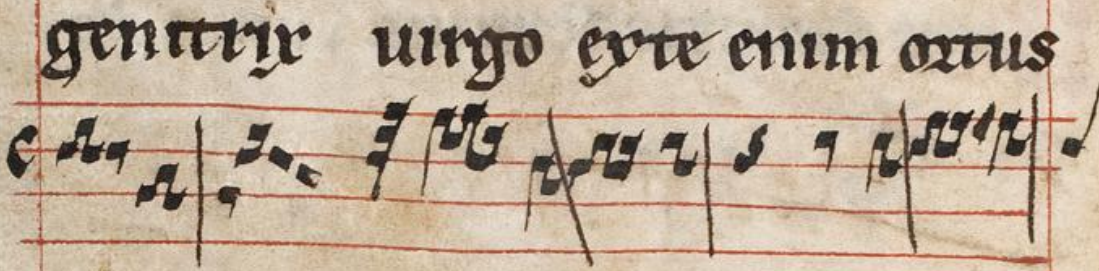 genitrix uirgo exte enim ortus